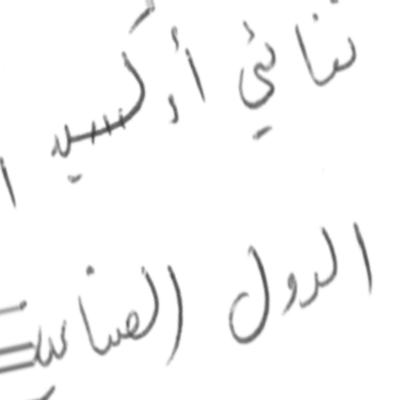 ثنائي أكسيد ا
الدول الصناعية